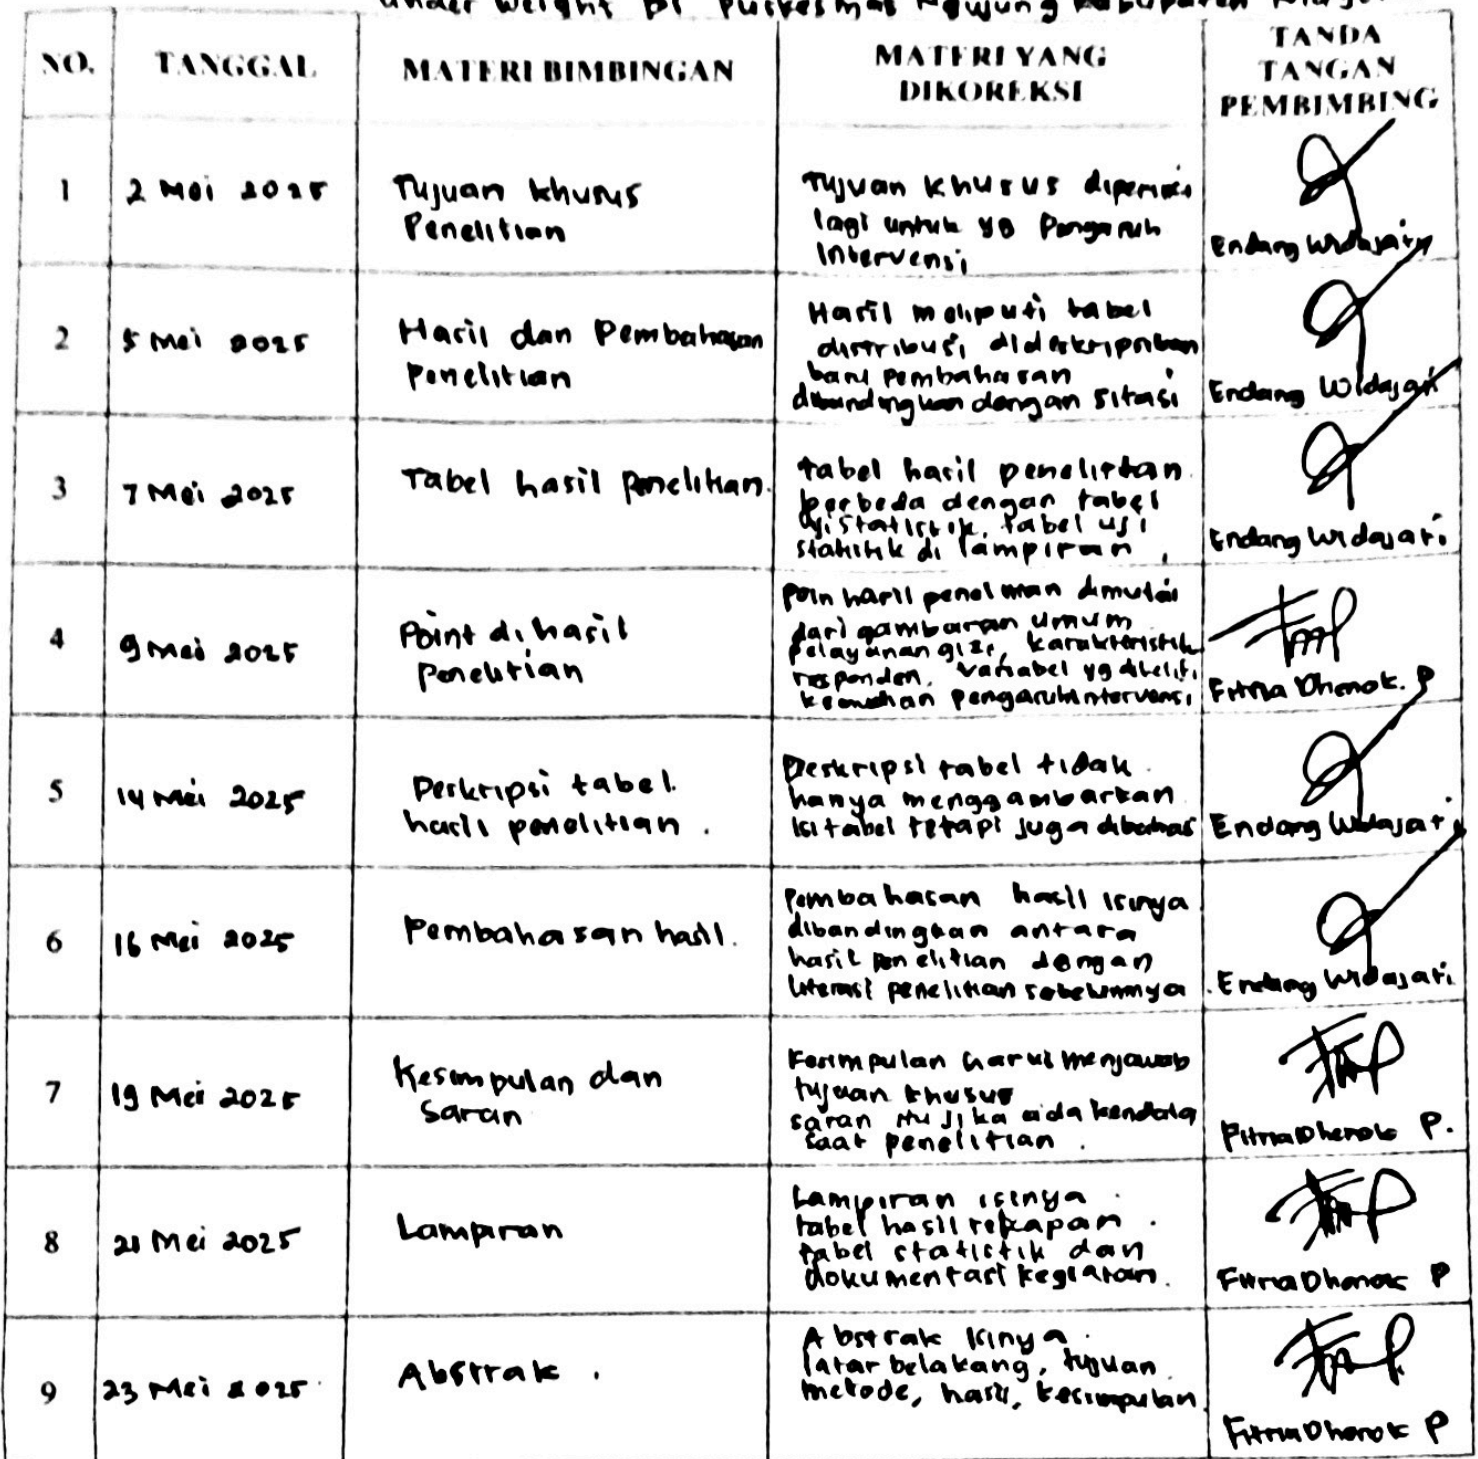 under weight Di Puskesmas Ngujung Kabupaten
NO. TANGGAL MATERI BIMBINGAN MATERI YANG DIKOREKSI TANDA TANGAN PEMBIMBING
1 2 Mei 2025
Tujuan khusus
Penelitian
Tujuan khusus
lagi untuk yg Pengaruh
Intervensi
Endang Widajati
2 5 Mei 2025
Hasil dan Pembahasan
penelitian
Hasil meliputi tabel
distribusi, dideskripsikan
baru pembahasan
dibandingkan dengan sitasi
Endang Widajati
3 7 Mei 2025
Tabel hasil penelitian.
tabel hasil penelitian
berbeda dengan tabel
uji statistik. tabel uji
statistik di lampiran
Endang Widajati
4 9 Mei 2025
Point di hasil
Penelitian
poin hasil penelitian dimulai
dari gambaran umum
pelayanan gizi, karakteristik
responden, variabel yg diteliti
kemudian pengaruh intervensi
Fitria Dhenok. P
5 14 Mei 2025
Deskripsi tabel.
hasil penelitian.
Deskripsi tabel tidak
hanya menggambarkan
isi tabel tetapi juga dibahas
Endang Widajati
6 16 Mei 2025
Pembahasan hasil.
Pembahasan hasil isinya
dibandingkan antara
hasil penelitian dengan
literasi penelitian sebelumnya
Endang Widajati
7 19 Mei 2025
Kesimpulan dan
Saran
Kesimpulan harus menjawab
tujuan khusus
saran itu jika ada kendala
saat penelitian.
Fitria Dhenok P.
8 21 Mei 2025
Lampiran
Lampiran isinya
tabel hasil rekapan.
tabel statistik dan
dokumentasi kegiatan.
Fitria Dhenok P
9 23 Mei 2025
Abstrak.
Abstrak isinya
latar belakang, tujuan
metode, hasil, kesimpulan
Fitria Dhenok P